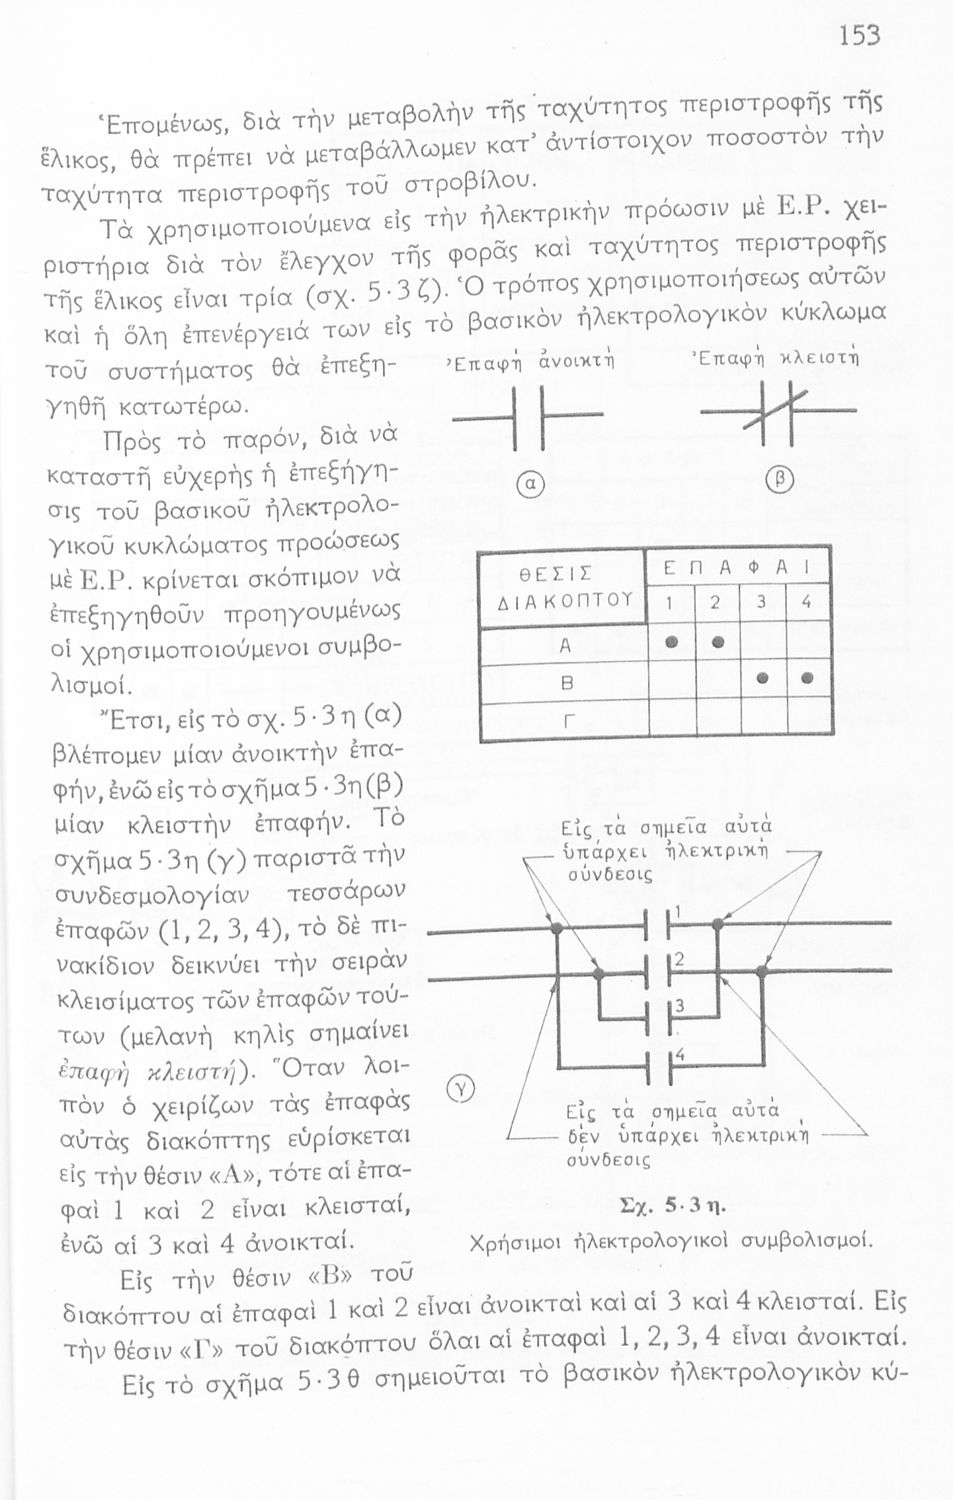 153
Ἑπομένως, διὰ τὴν μεταβολὴν τῆς ταχύτητος περιστροφῆς τῆς
ἕλικος, θὰ πρέπει νὰ μεταβάλλωμεν κατ’ ἀντίστοιχον ποσοστὸν τὴν
ταχύτητα περιστροφῆς τοῦ στροβίλου.
Τὰ χρησιμοποιούμενα εἰς τὴν ἠλεκτρικὴν πρόωσιν μὲ Ε.Ρ. χει-
ριστήρια διὰ τὸν ἔλεγχον τῆς φορᾶς καὶ ταχύτητος περιστροφῆς
τῆς ἕλικος εἶναι τρία (σχ. 5·3 ζ). Ὁ τρόπος χρησιμοποιήσεως αὐτῶν
καὶ ἡ ὅλη ἐπενέργειά των εἰς τὸ βασικὸν ἠλεκτρολογικὸν κύκλωμα
τοῦ συστήματος θὰ ἐπεξη-
γηθῆ κατωτέρω.
Πρὸς τὸ παρόν, διὰ νὰ
καταστῆ εὐχερὴς ἡ ἐπεξήγη-
σις τοῦ βασικοῦ ἠλεκτρολο-
γικοῦ κυκλώματος προώσεως
μὲ Ε.Ρ. κρίνεται σκόπιμον νὰ
ἐπεξηγηθοῦν προηγουμένως
οἱ χρησιμοποιούμενοι συμβο-
λισμοί.
Ἔτσι, εἰς τὸ σχ. 5·3 η (α)
βλέπομεν μίαν ἀνοικτὴν ἐπα-
φήν, ἐνῶ εἰς τὸ σχῆμα 5·3η (β)
μίαν κλειστὴν ἐπαφήν. Τὸ
σχῆμα 5·3η (γ) παριστᾶ τὴν
συνδεσμολογίαν τεσσάρων
ἐπαφῶν (1, 2, 3, 4), τὸ δὲ πι-
νακίδιον δεικνύει τὴν σειρὰν
κλεισίματος τῶν ἐπαφῶν τού-
των (μελανὴ κηλὶς σημαίνει
ἐπαφὴ κλειστή). Ὅταν λοι-
πὸν ὁ χειρίζων τὰς ἐπαφὰς
αὐτὰς διακόπτης εὑρίσκεται
εἰς τὴν θέσιν «Α», τότε αἱ ἐπα-
φαὶ 1 καὶ 2 εἶναι κλεισταί,
ἐνῶ αἱ 3 καὶ 4 ἀνοικταί.
Εἰς τὴν θέσιν «Β» τοῦ
διακόπτου αἱ ἐπαφαὶ 1 καὶ 2 εἶναι ἀνοικταὶ καὶ αἱ 3 καὶ 4 κλεισταί. Εἰς
τὴν θέσιν «Γ» τοῦ διακόπτου ὅλαι αἱ ἐπαφαὶ 1, 2, 3, 4 εἶναι ἀνοικταί.
Εἰς τὸ σχῆμα 5·3 θ σημειοῦται τὸ βασικὸν ἠλεκτρολογικὸν κύ-
Ἐπαφὴ ἀνοικτὴ
Ἐπαφὴ κλειστὴ
α
β
ΘΕΣΙΣ
ΔΙΑΚΟΠΤΟΥ
ΕΠΑΦΑΙ
1 2 3 4
Α ● ●
Β ● ●
Γ
Εἰς τὰ σημεῖα αὐτὰ
ὑπάρχει ἠλεκτρικὴ
σύνδεσις
1
2
3
4
γ
Εἰς τὰ σημεῖα αὐτὰ
δὲν ὑπάρχει ἠλεκτρικὴ
σύνδεσις
Σχ. 5·3 η.
Χρήσιμοι ἠλεκτρολογικοὶ συμβολισμοί.